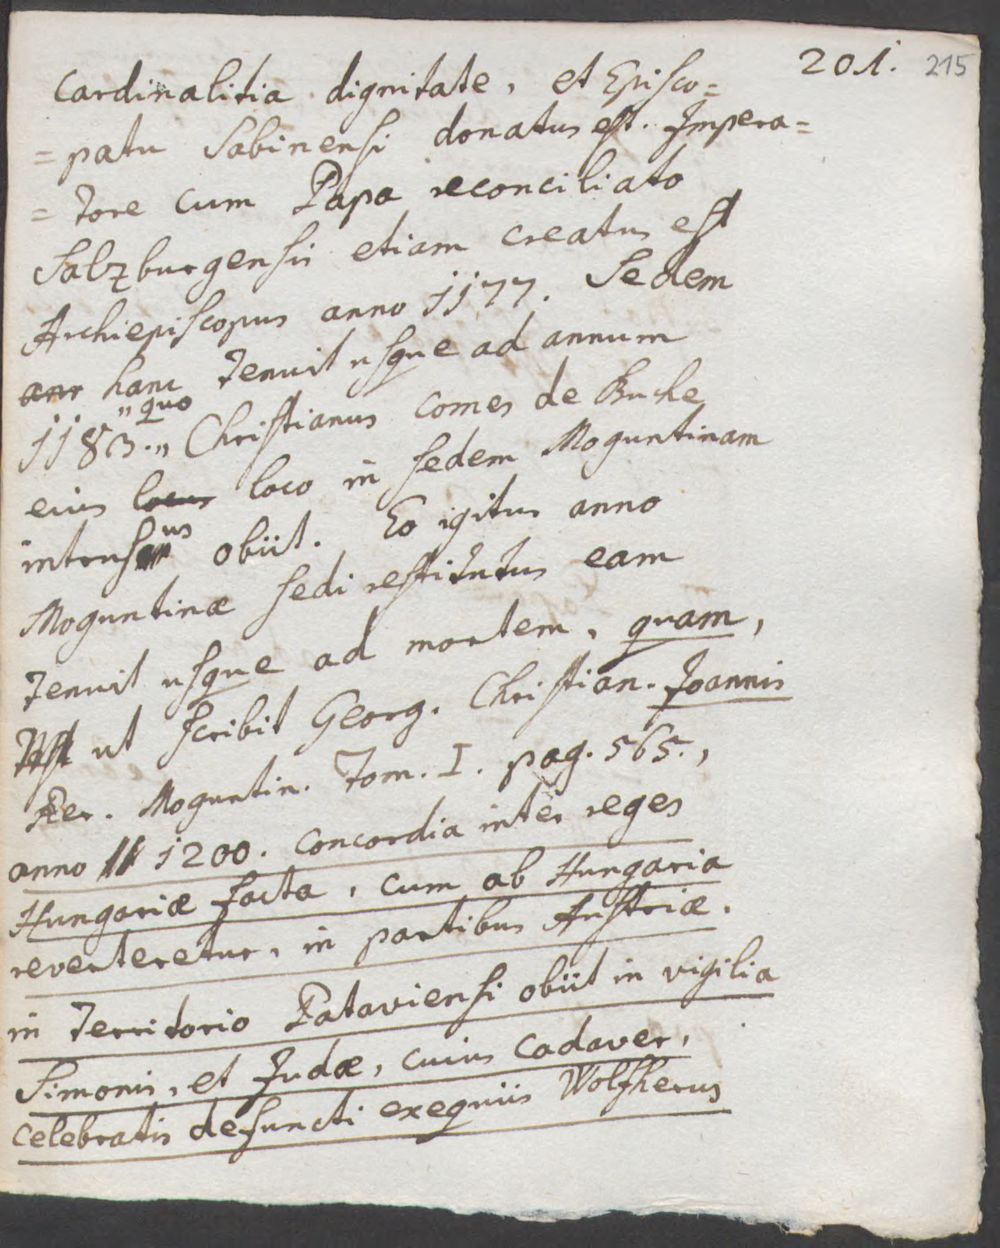 201. 215
Cardinalitia dignitate, et Episco=
=patu Sabinensi donatus est. Impera=
=tore cum Papa reconciliato
Salzburgensis etiam creatus est
Archiepiscopus anno 1177. Sedem
hanc tenuit usque ad annum
1183. „quo„ Christianus comes de Buche
eius loco in sedem Moguntinam
intrusus obiit. Eo igitur anno
Moguntinæ sedi restitutus eam
tenuit usque ad mortem, quam,
ut scribit Georg. Christian. Joannis
Rer. Moguntin. Tom. I. pag. 565.,
anno 1200. concordia inter reges
Hungariæ facta, cum ab Hungaria
reverteretur, in partibus Austriæ.
in Territorio Pataviensi obiit in vigilia
Simonis, et Judæ, cuius cadaver,
celebratis defuncti exequiis Wolfherus